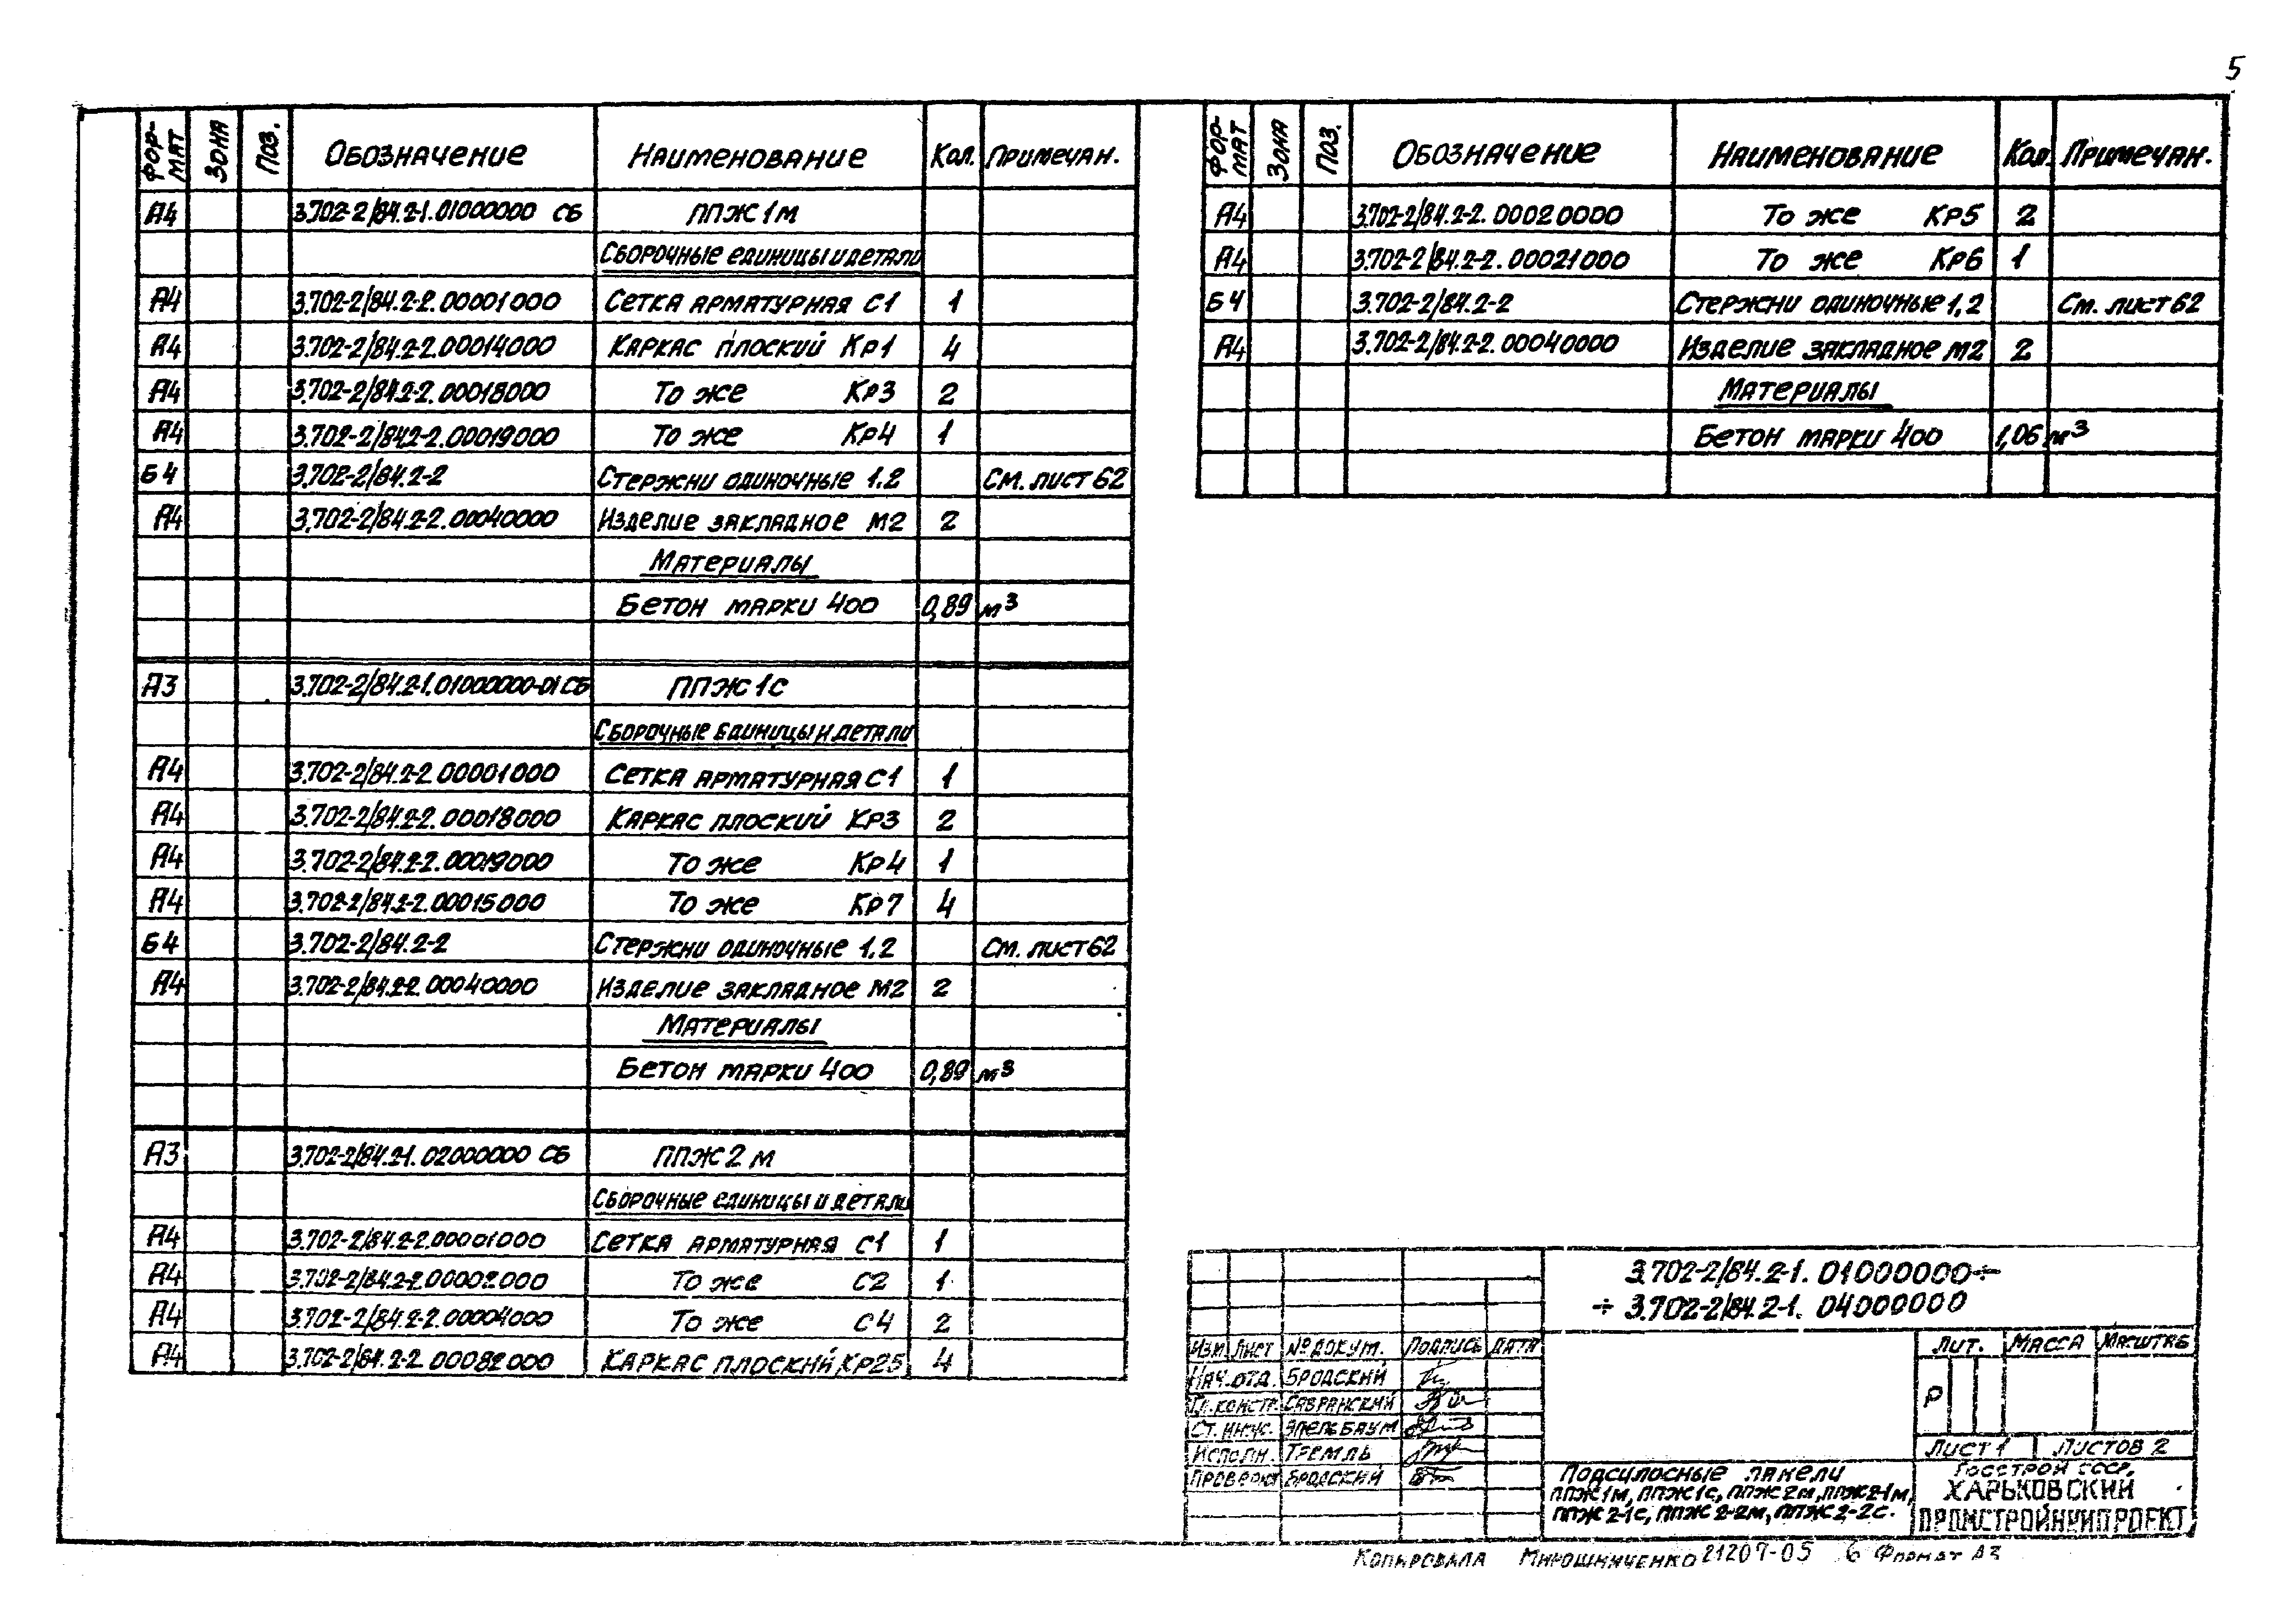 5
Формат Зона Поз. Обозначение Наименование Кол. Примечан.
А4 3.702-2/84.2-1.01000000 СБ ППЖ1м
Сборочные единицы и детали
А4 3.702-2/84.2-2.00001000 Сетка арматурная С1 1
А4 3.702-2/84.2-2.00014000 Каркас плоский Кр1 4
А4 3.702-2/84.2-2.00018000 То же Кр3 2
А4 3.702-2/84.2-2.00019000 То же Кр4 1
Б4 3.702-2/84.2-2 Стержни одиночные 1.2 См. лист 62
А4 3.702-2/84.2-2.00040000 Изделие закладное М2 2
Материалы
Бетон марки 400 0,89 м³
А3 3.702-2/84.2-1.01000000-01СБ ППЖ1с
Сборочные единицы и детали
А4 3.702-2/84.2-2.00001000 Сетка арматурная С1 1
А4 3.702-2/84.2-2.00018000 Каркас плоский Кр3 2
А4 3.702-2/84.2-2.00019000 То же Кр4 1
А4 3.702-2/84.2-2.00015000 То же Кр7 4
Б4 3.702-2/84.2-2 Стержни одиночные 1,2 См. лист 62
А4 3.702-2/84.2-2.00040000 Изделие закладное М2 2
Материалы
Бетон марки 400 0,89 м³
А3 3.702-2/84.2-1.02000000 СБ ППЖ2м
Сборочные единицы и детали
А4 3.702-2/84.2-2.00001000 Сетка арматурная С1 1
А4 3.702-2/84.2-2.00002000 То же С2 1
А4 3.702-2/84.2-2.00004000 То же С4 2
А4 3.702-2/84.2-2.00082000 Каркас плоский Кр25 4
Формат Зона Поз. Обозначение Наименование Кол. Примечан.
А4 3.702-2/84.2-2.00020000 То же Кр5 2
А4 3.702-2/84.2-2.00021000 То же Кр6 1
Б4 3.702-2/84.2-2 Стержни одиночные 1,2 См. лист 62
А4 3.702-2/84.2-2.00040000 Изделие закладное М2 2
Материалы
Бетон марки 400 1,06 м³
3.702-2/84.2-1.01000000÷
÷3.702-2/84.2-1.04000000
Изм Лист № докум. Подпись Дата
Нач.отд. Бродский
Гл.констр. Савранский
Ст.инж. Эпельбаум
Исполн. Тремль
Проверил Бродский
Лит. Масса Масштаб
Р
Лист 1 Листов 2
Подсилосные панели
ППЖ1м, ППЖ1с, ППЖ2м, ППЖ2-1м,
ППЖ2-1с, ППЖ2-2м, ППЖ2-2с.
Госстрой СССР,
Харьковский
Промстройниипроект
Копировала Мирошниченко 21207-05 6 Формат А3